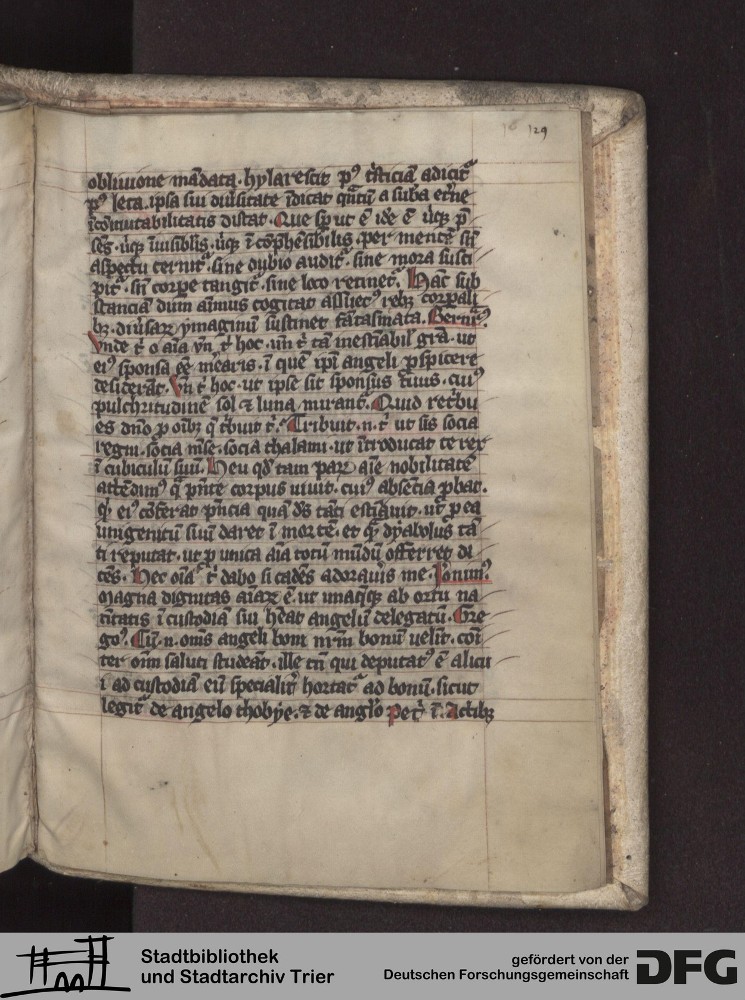 129
obliuione mādata. hylarescit pꝰ tͥsticiā adicit᷑
pꝰ leta. ipsa sui diu͛sitate īdicat qͣntū a suba et͛ne
īcōmutabilitatis distat. Que sp ut ē ide ē ūcꝗ p̄
sēs. ūcꝗ īuisiblis. ūcꝗ ī cōp̄hēsibilis. per mentē sn̄
aspectu cernit᷑. sine dubio audit᷑. sine mora susci
pit᷑. sn̄ corpe tangit᷑. sine loco retinet᷑. Hāc sub
stanciā dum aīmus cogitat assuetꝰ rebꝫ corpali
bꝫ. diu͛saꝝ ymaginū sustinet fātasmata. Bernͣrdꝰ.
Vnde t͛ o aīa vn̄ t͛ hoc. un̄ t͛ tā inestīabil' grā. ut
eiꝰ sponsa ēē mearis. ī quē ip̄i angeli pspicere
desiderāt. Vn̄ t͛ hoc. ut ipse sit sponsus tuus. cuiꝰ
pulchritudinē sol ⁊ luna mirant᷑. Quid ret͛bu
es dn̄o p oībꝫ q̄ t͛buit t͛. Tribuit .n. t͛ ut sis socia
regni. socia mēse. socia thalami. ut ītroducat te rex
ī cubiculū suū. Heu qd̄ tam parꝝ aīe nobilitatē
attēdimꝰ q̄ p̄nte corpus uiuit. cuiꝰ absētia pbat.
qͥd eiꝰ cōferat p̄ncia quā dꝰ tāti estīauit. ut᷑ p ea
unigenitū suū daret ī mortē. et qͣ dyabolus tā
ti reputat. ut p unica aīa totū mūdū offerret di
cēs. Hec oīa t͛ dabo si cadēs adorauis me. Ieronimꝰ.
Magna dignitas aīaꝝ ē. ut unaq̄ꝗ ab ortu na
tītatis ī custodiā sui hēat angelū delegatū. Gre
goꝰ. Cū .n. om̄s angeli boni nr̄m bonū uelit. cōī
ter oīm saluti studeāt. ille tn̄ qui deputatꝰ ē alicu
i ad custodiā eū specialit͛ hortat᷑ ad bonū. sicut
legit᷑ de angelo thobye. ⁊ de anglo Pet͛ ī. Actibꝫ
Stadtbibliothek
und Stadtarchiv Trier
gefördert von der
Deutschen Forschungsgemeinschaft
DFG